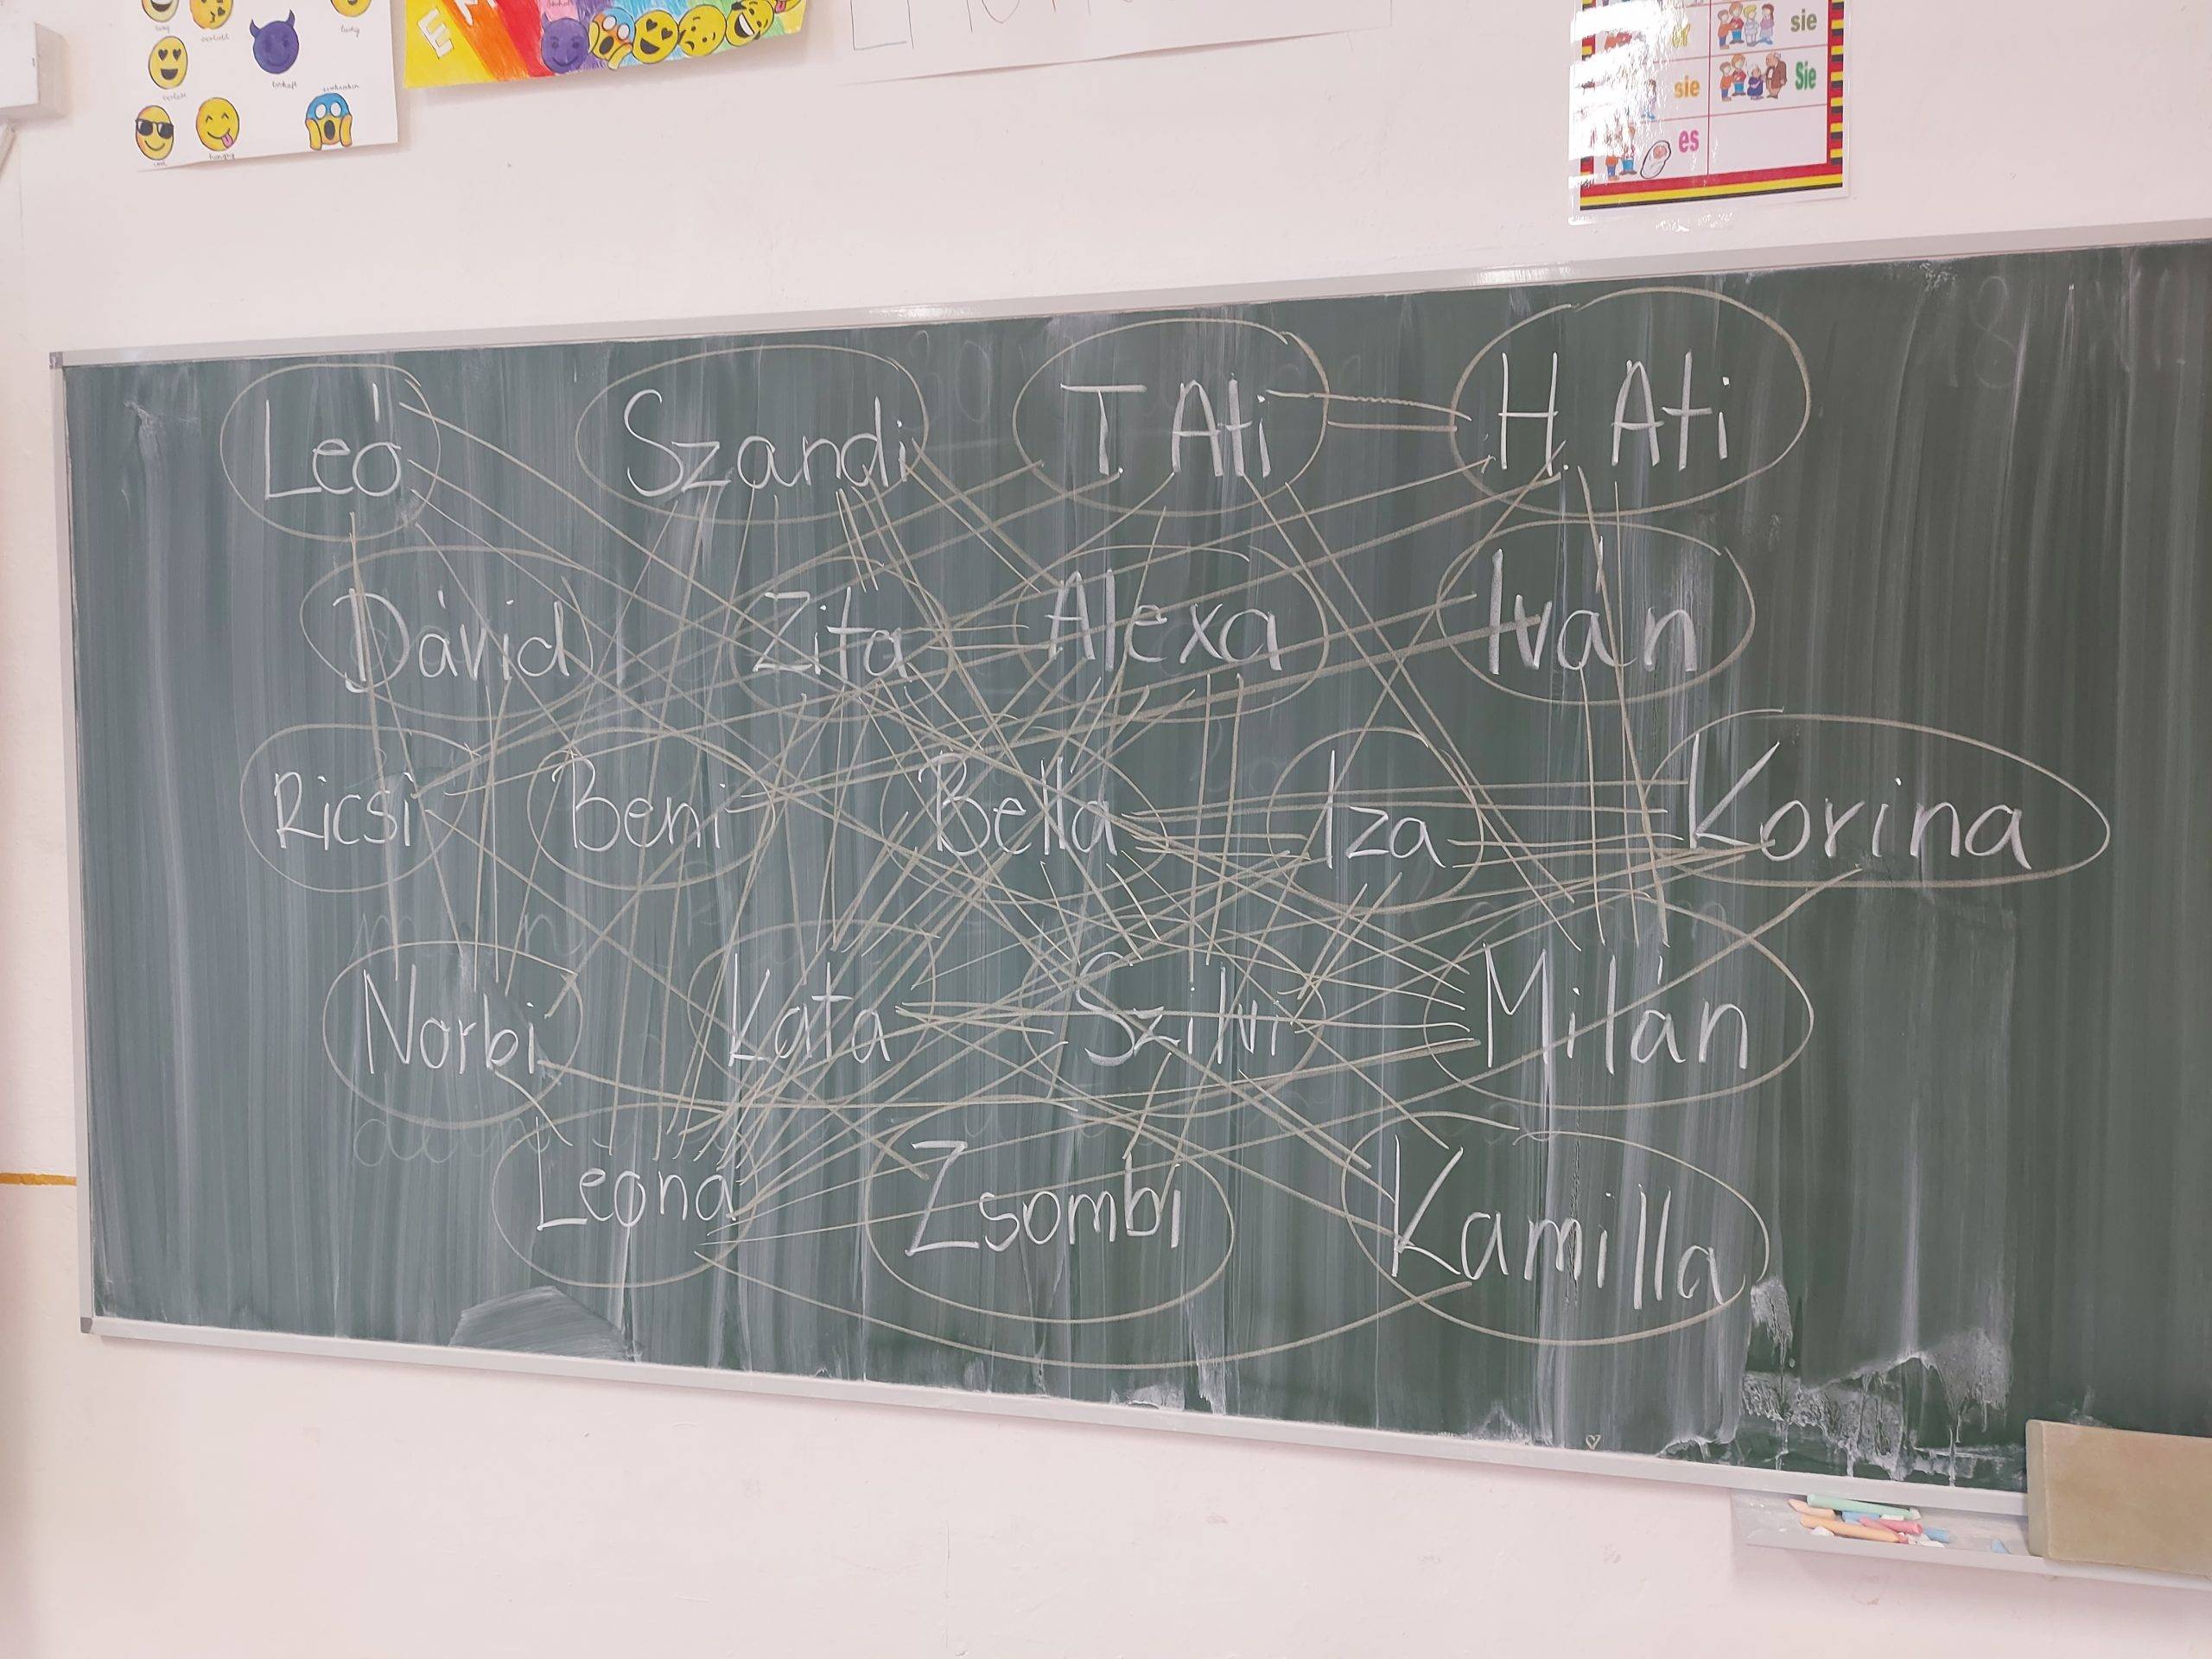 er sie
sie Sie
es
Leó Szandi T. Ati H. Ati
Dávid Zita Alexa Iván
Ricsi Beni Bella Iza Korina
Norbi Kata Szilvi Milán
Leona Zsombi Kamilla